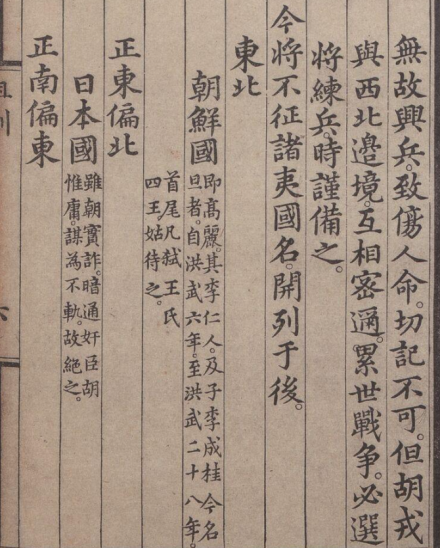 無故興兵。致傷人命。切記不可。但胡戎
與西北邊境。互相密邇。累世戰争。必選
將練兵。時謹備之。
今將不征諸夷國名。開列于後。
東北
朝鮮國即高麗。其李仁人。及子李成桂今名
旦者。自洪武六年。至洪武二十八年。
首尾凡弑王氏
四王。姑待之。
正東偏北
日本國雖朝實詐。暗通奸臣胡
惟庸。謀為不軌。故絶之。
正南偏東